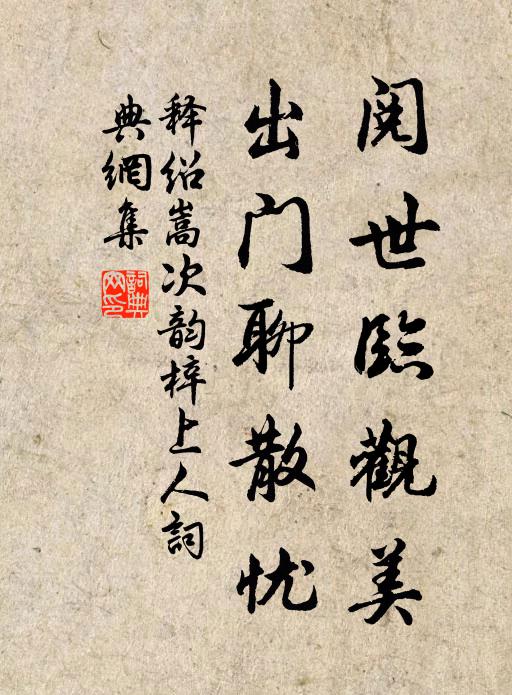 阅世臨觀美
出门聊散忧
释绍嵩次韵梓上人詞
典網集
詞典網印